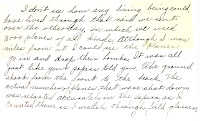 I don't see how any living being could
have lived through that raid we sent
over the other day in which we used
3000 planes of all kinds. Although I was
miles from it I could see the planes
go in and drop their bombs. It was all
just like your papers told you. The ground
shook from the front to the back. The
actual number of planes that were shot down
was reported accurately in the papers as I
counted them as I watched through field glasses